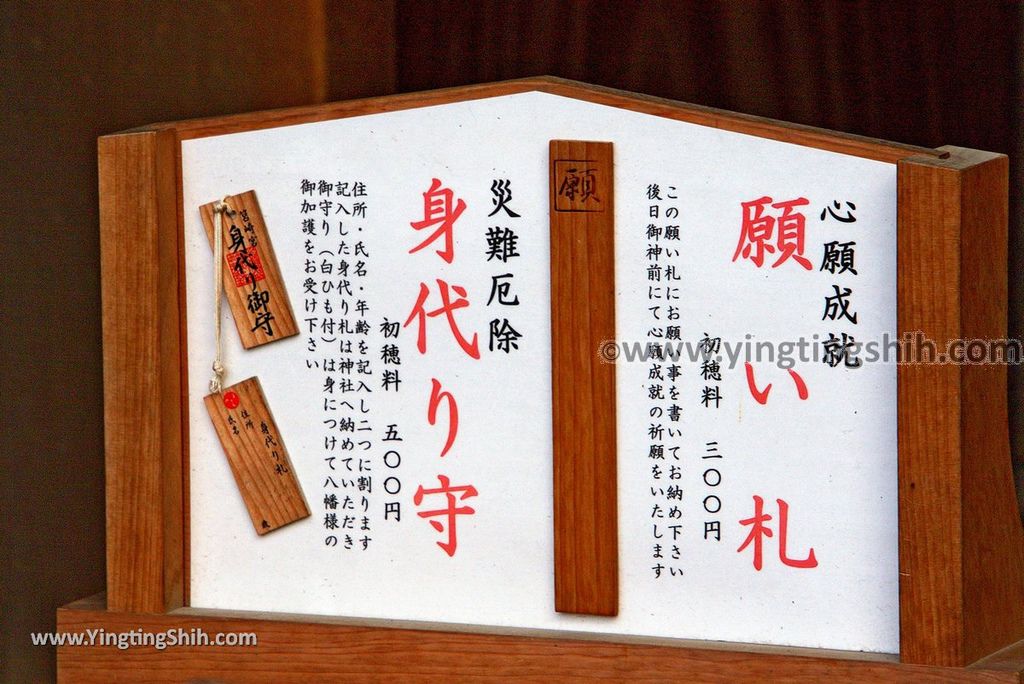 心願成就
願い札
初穂料 三〇〇円
この願い札にお願い事を書いてお納め下さい
後日御神前にて心願成就の祈願をいたします
願
災難厄除
身代り守
初穂料 五〇〇円
住所・氏名・年齢を記入し二つに割ります
記入した身代り札は神社へ納めていただき
御守り（白ひも付）は身につけて八幡様の
御加護をお受け下さい
身代り御守
身代り札
住所
氏名
歳
©www.yingtingshih.com
www.YingtingShih.com